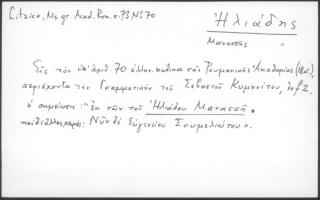 Litzica, Ms gr. Acad. Rom. σ. 73 Nº 70
Ἡλιάδης
Μανασσῆς
Εἰς τὸν ὑπ' ἀριθ. 70 ἑλλην. κώδικα τῆς Ρουμανικῆς Ἀκαδημίας
περιέχοντα τὴν Γραμματικὴν τοῦ Σεβαστοῦ Κυμηνίτου, ἐν f 2
ἡ σημείωσις: "Ἐκ τῶν τοῦ Ἡλιάδου Μανασσῆ.
καὶ δι' ἄλλης χειρός: Νῦν δὲ Εὐγενείου Σουμελιώτου".